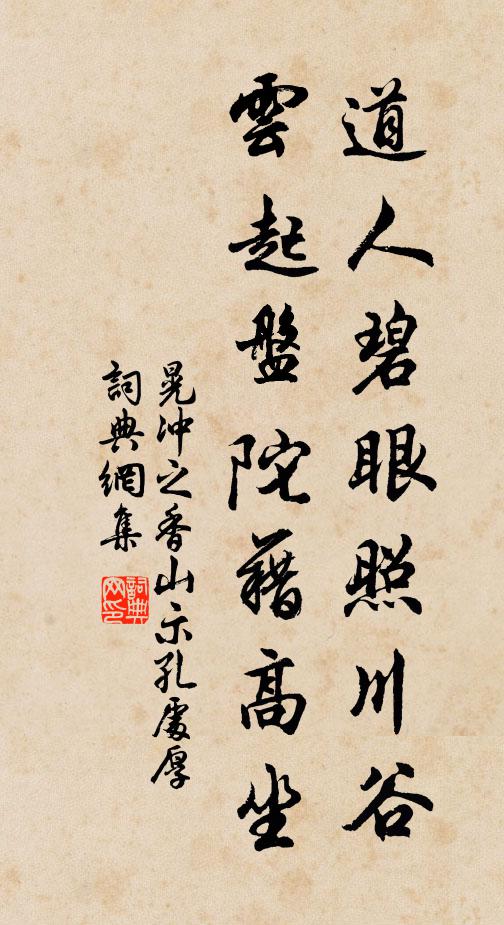 道人碧眼照川谷
雲起盤陀藉高坐
晁冲之香山示孔處厚
詞典網集
詞典網印